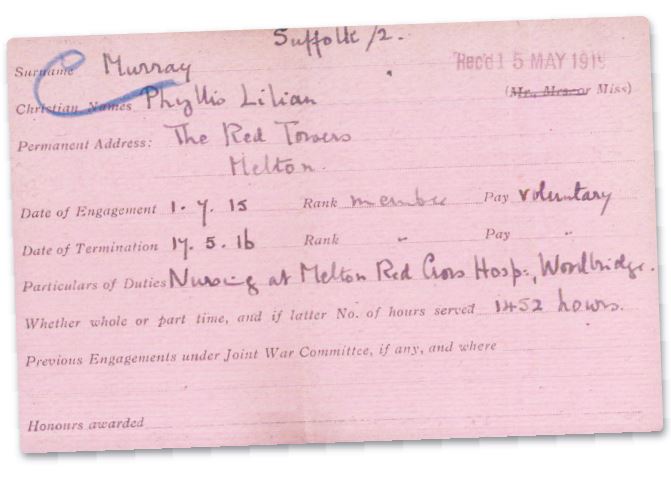 Suffolk /2.
Surname Murray
Rec'd 15 MAY 1919
Christian Names Phyllis Lilian (Mr., Mrs. or Miss)
Permanent Address: The Red Towers
Melton.
Date of Engagement 1. 7. 15 Rank member Pay voluntary
Date of Termination 17. 5. 16 Rank " Pay "
Particulars of Duties Nursing at Melton Red Cross Hosp:, Woodbridge.
Whether whole or part time, and if latter No. of hours served 1452 hours.
Previous Engagements under Joint War Committee, if any, and where
Honours awarded